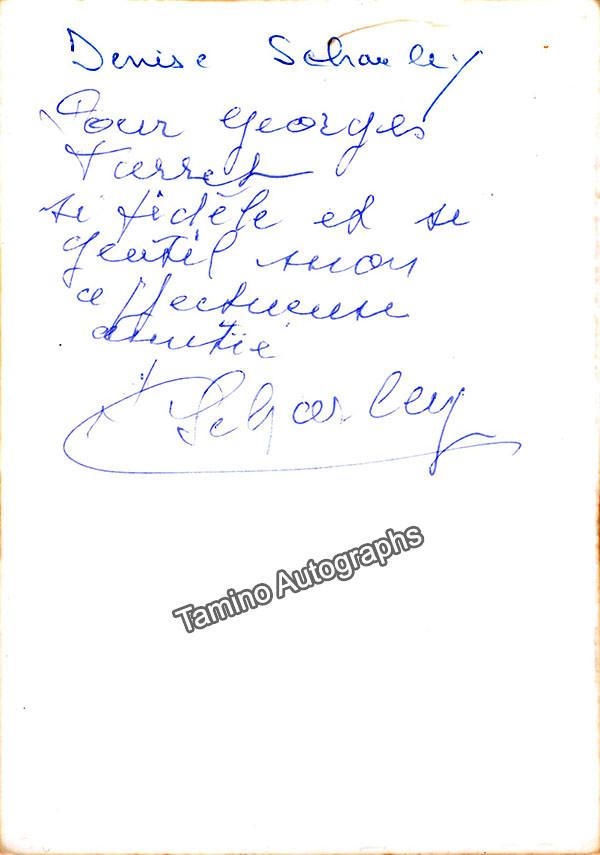 Denise Scharley
Pour Georges
Farret
si fidèle et si
gentil mon
affectueuse
amitié
Scharley
Tamino Autographs